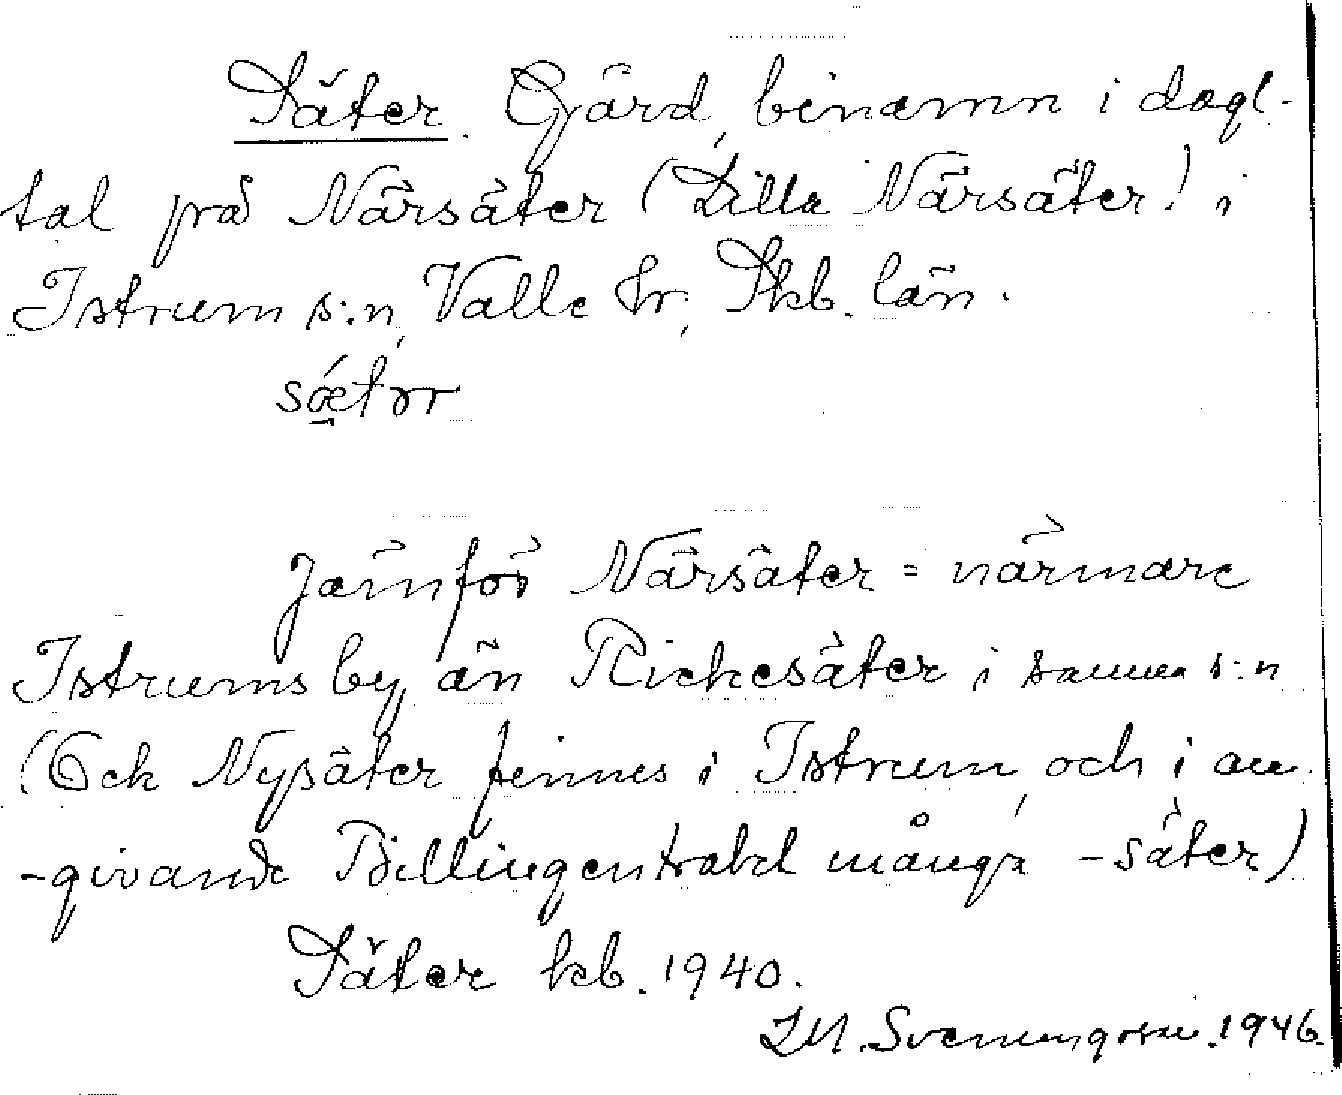 Säter. Gård, binamn i dagl.
tal på Närsäter (Lilla Närsäter) i
Istrum s:n, Valle hr, Skb. län.
sǽtər
Jämför Närsäter = närmare
Istrums by än Rickesäter i samma s:n
(Ock Nysäter finnes i Istrum, och i an
-givande Billingentrakt många -säter)
Säter kb. 1940.
Svenungsson. 1946.